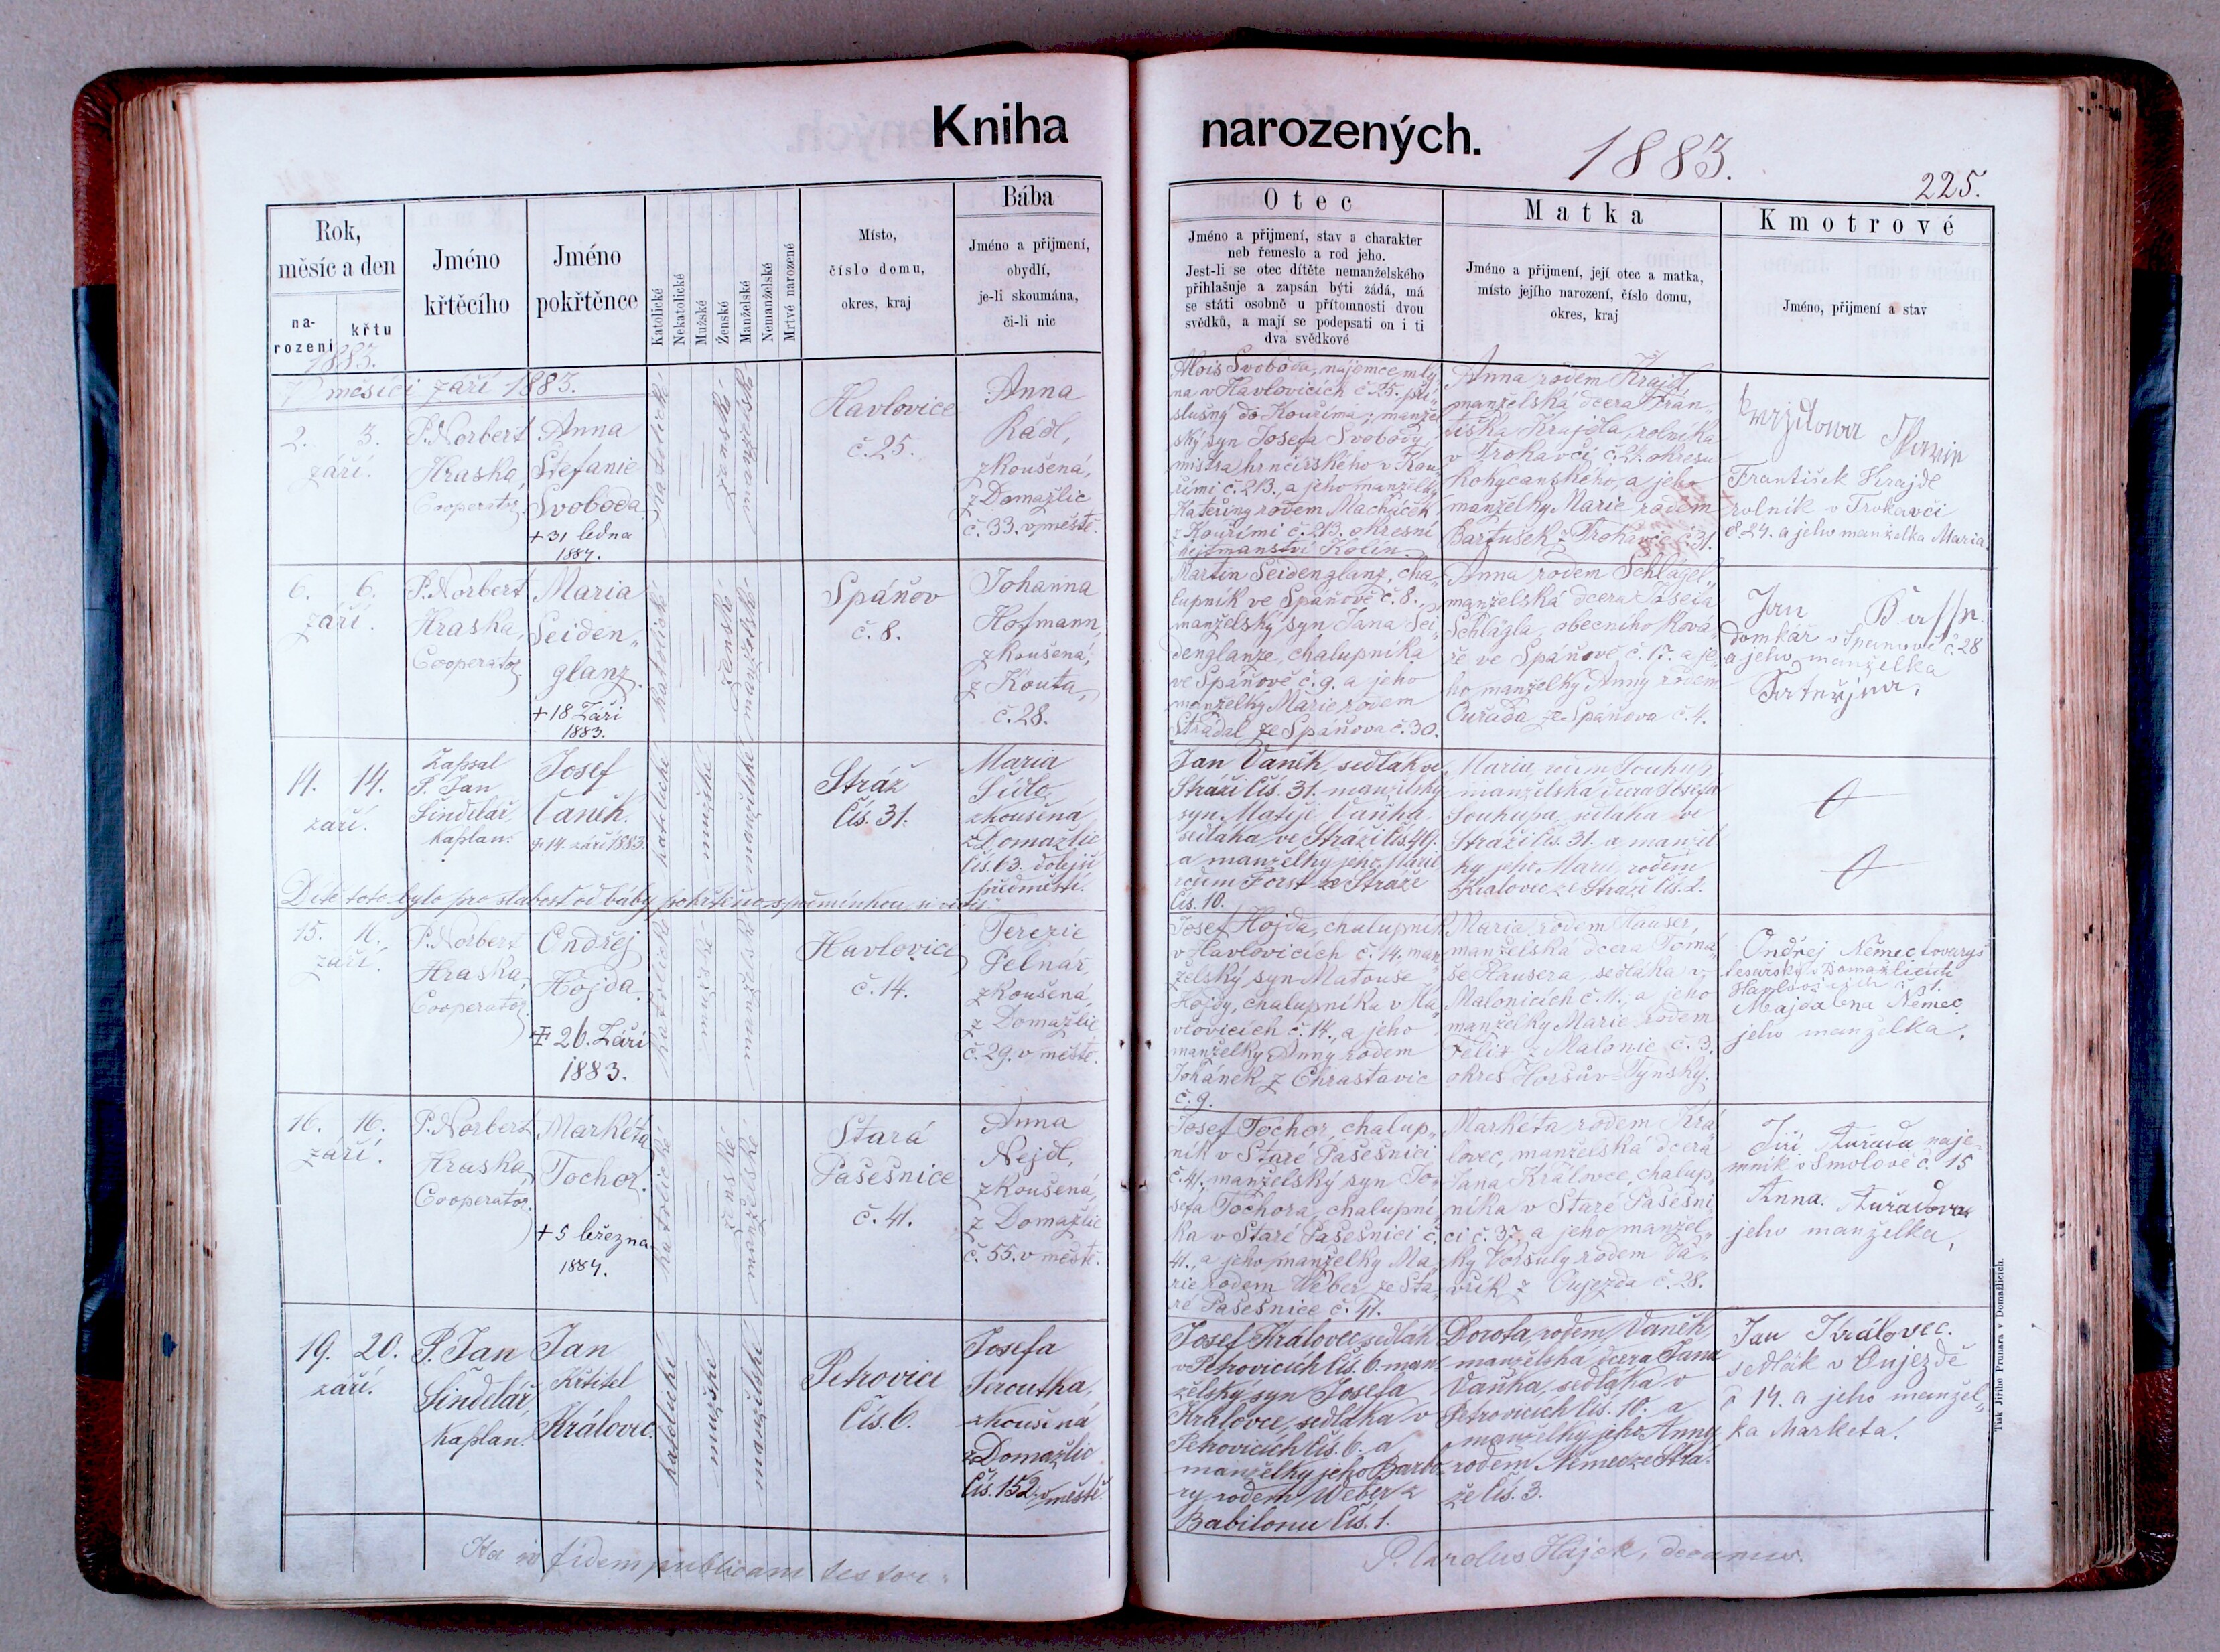 Kniha narozených.
1883.
225.
Rok,
měsíc a den
na-
rození
křtu
1883.
Jméno
křtěcího
Jméno
pokřtěnce
Katolické
Nekatolické
Mužské
Ženské
Manželské
Nemanželské
Mrtvě narozené
Místo,
číslo domu,
okres, kraj
Bába
Jméno a přijmení,
obydlí,
je-li skoumána,
či-li nic
Otec
Jméno a přijmení, stav a charakter
neb řemeslo a rod jeho.
Jest-li se otec dítěte nemanželského
přihlašuje a zapsán býti žádá, má
se státi osobně u přítomnosti dvou
svědků, a mají se podepsati on i ti
dva svědkové
Matka
Jméno a přijmení, její otec a matka,
místo jejího narození, číslo domu,
okres, kraj
Kmotrové
Jméno, přijmení a stav
V měsíci září 1883.
2. 3.
září.
P. Norbert
Hraska,
Cooperator
Anna
Stefanie
Svoboda.
+ 31 ledna
1884.
katolické
ženské
manželské
Havlovice
č. 25.
Anna
Rádl,
zkoušená,
z Domažlic
č. 33. v městě.
Alois Svoboda, nájemce mlý-
na v Havlovicích č. 25. pří-
slušný do Kouřima; manžel
ský syn Josefa Svobody,
mistra hrnčířského v Kou-
řími č. 213., a jeho manželky
Kateřiny rodem Macháček
z Kouřimi č. 213. okresní
hejtmanství Kolín.
Anna rodem Krajdl,
manželská dcera Fran-
tiška Krajdla, rolníka
v Trokavči č. 24. okresu
Rokycanského, a jeho
manželky Marie rodem
Bartušek z Trokavče č. 31.
František Krajdl
rolník v Trokavči
č. 24. a jeho manželka Maria.
6. 6.
září.
P. Norbert
Hraska,
Cooperator
Maria
Seiden-
glanz.
+ 18 Září
1883.
katolické
ženské
manželské
Spáňov
č. 8.
Johanna
Hofmann,
zkoušená,
z Kouta,
č. 28.
Martin Seidenglanz, cha-
lupník ve Spáňově č. 8.,
manželský syn Jana Sei-
denglanze, chalupníka
ve Spáňově č. 9. a jeho
manželky Marie rodem
Stradal ze Spáňova č. 30.
Anna rodem Schlägel,
manželská dcera Josefa
Schlägla, obecního ková-
ře ve Spáňově č. 17. a je-
ho manželky Anny rodem
Ouřada ze Spáňova č. 4.
Jan
domkář v Spanově č. 28
a jeho manželka
14. 14.
září.
Zapsal
P. Jan
Šindelář,
kaplan.
Josef
Vaněk.
+ 14. září 1883.
katolické
mužské
manželské
Stráž
Čís. 31.
Maria
Sidlo,
zkoušena
z Domažlic
Čís. 63. dolejší
předměstí.
Jan Vaněk, sedlák ve
Stráži Čís. 31. manželský
syn Matěje Vaňka,
sedláka ve Stráži Čís. 49.
a manželky jeho Marie
rodem Forst ze Stráže
Čís. 10.
Maria, rodem Souhup
manželská dcera Josefa
Souhupa, sedláka ve
Stráži Čís. 31. a manžel
ky jeho Marie, rodem
Královec ze Stráže Čís. 2.
Dítě toto bylo pro slabost od báby pokřtěno
15. 16.
září.
P. Norbert
Hraska,
Cooperator.
Ondřej
Hojda.
+ 26. Září
1883.
katolické
mužské
manželské
Havlovice
č. 14.
Terezie
Pelnař,
zkoušená,
z Domažlic
č. 29. v městě.
Josef Hojda, chalupník
v Havlovicích č. 14. man-
želský syn Matouše
Hojdy, chalupníka v Ha-
vlovicích č. 14., a jeho
manželky Anny rodem
Johánek z Chrastavic
č. 9.
Maria, rodem Hauser,
manželská dcera Tomá-
še Hausera, sedláka v
Malonicích č. 11., a jeho
manželky Marie rodem
Felix z Malonic č. 3.
okres Horšův-Týnský.
Ondřej Němec tovaryš
tesarský v Domažlicích
Majdalena Němec
jeho manželka.
16. 16.
září.
P. Norbert
Hraska,
Cooperator.
Markéta
Tochor.
+ 5 března
1884.
katolické
ženské
manželské
Stará
Pašešnice
č. 41.
Anna
Nejdl,
zkoušená,
z Domažlic
č. 55. v městě.
Josef Tochor, chalup-
ník v Staré Pašešnici
č. 41., manželský syn Jo-
sefa Tochora, chalupní-
ka v Staré Pašešnici č.
41., a jeho manželky Ma-
rie, rodem Weber ze Sta-
ré Pašešnice č. 41.
Markéta rodem Krá-
lovec, manželská dcera
Jana Královce, chalup-
níka v Staré Pašešni-
ci č. 37. a jeho manžel-
ky Voršuly rodem Va-
vřík z Oujezda č. 28.
Jiří Kuřada náje-
mník v Smolově č. 15
Anna. Kuřadova
jeho manželka,
19. 20.
září.
P. Jan
Šindelář,
kaplan.
Jan
Křtitel
Královec.
katolické
mužské
manželské
Petrovice
Čís. 6.
Josefa
Percutka,
zkoušená
z Domažlic
Čís. 152. v městě.
Josef Královec, sedlák
v Petrovicích Čís. 6. man-
želský syn Josefa
Královce, sedláka v
Petrovicích Čís. 6. a
manželky jeho Barbo-
ry rodem Weber z
Babilonu Čís. 1.
Dorota, rodem Vaněk
manželská dcera Jana
Vaňka, sedláka v
Petrovicích Čís. 10. a
manželky jeho Anny
rodem Němec ze Strá-
že Čís. 3.
Jan Královec.
sedlák v Oujezdě
č 14. a jeho manžel-
ka Marketa.
Ita in fidem publicam testor:
P. Carolus Hájek, decanus.
Tisk Jiřího Prunara v Domažlicích.